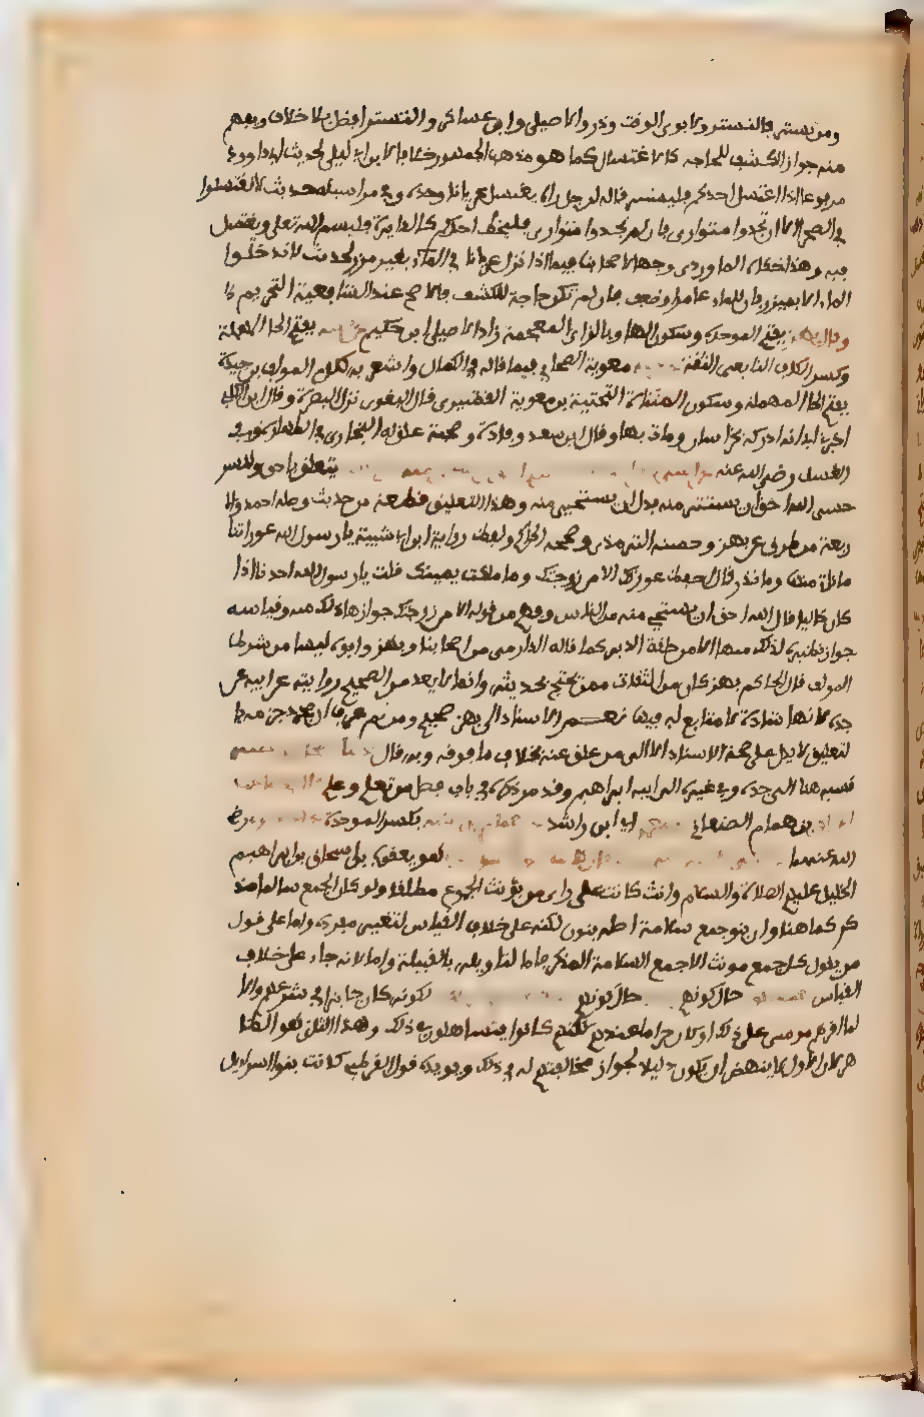 ومن يستتر بالتستر ولابوى الوقت وذر والاصيلى وابن عساكر والتستر افضل بلا خلاف ويفهم
منه جواز الكشف للحاجه كالاغتسال كما هو مذهب الجمهور خلافا لابن ابى ليلى لحديث ابى داوود
مربوعا اذا اغتسل احدكم فليستتر قاله لرجل راه يغتسل عريانا وحده وفى مراسيله حديث لا تغتسلوا
فى الصحرا الا ان تجدوا متوارى فان لم تجدوا متوارى فليخط احدكم كالدايرة فليسم الله تعلى ويغتسل
فيه وهذا حكاه الماوردى وجها لاصحابنا فيما اذا نزل عريانا فى الماء بغير ميزر لحديث لا تدخلوا
الماء الا بميزر فان للماء عامرا وضعف فان لم تكن حاجة للكشف فالاصح عند الشافعية التحريم
وقال بهز بفتح الموحدة وسكون الها وبالزاى المعجمة زاد الاصيلى ابن حكيم بفتح الحا المهملة
وكسر الكاف التابعى الثقة معوية الصحابى فيما قاله فى الكمال واشعر به كلام المولف بن حيدة
بفتح الحا المهملة وسكون المثناة التحتية بن معوية القشيرى قال البغوى نزل البصرة وقال ابن الكلبى
اخبرنى ابى انه ادركه بخراسان ومات بها وقال ابن سعد وفادة وصحبة علق له البخارى فى الطهارة وفى
الغسل رضى الله عنه يتعلق باحق وللسر
خسى الله احق ان يستتر منه بدل ان يستحيى منه وهذا التعليق قطعة من حديث وصله احمد والا
ربعة من طرق عن بهز وحسنه الترمذى وصححه الحاكم ولفظ رواية ابن ابى شيبة يا رسول الله عوراتنا
ما ناتى منها وما نذر قال احفظ عورتك الا من زوجتك وما ملكت يمينك قلت يا رسول الله احدنا اذا
كان خاليا قال الله احق ان يستحيى منه من الناس وفهم من قوله الا من زوجتك جواز نظرها ذلك منه وقياسه
جواز نظره لذلك منها الا من حلقة الدبر كما قاله الدارمى من اصحابنا وبهز وابوه ليسا من شرط
المولف قال الحاكم بهز كان من الثقات ممن يحتج بحديثه وانما لا يعد من الصحيح روايته عن ابيه عن
جده لانها شاذة لا متابع له فيها نعم الاسناد الى بهز صحيح ومن ثم عرف ان مجرد جزمه با
لتعليق لا يدل على صحة الاسناد الا الى من علق عنه بخلاف ما فوقه وبه قال
نسبه هنا الى جده وفى غيره الى ابيه ابراهيم وقد مر ذكره فى باب فضل من تعلم وعلم
بن همام الصنعانى اى ابن راشد بكسر الموحدة
الله عنه هو يعقوب بن اسحاق بن ابراهيم
الخليل عليهم الصلاة والسلام وانث كانت على راى من يؤنث الجموع مطلقا ولو كان الجمع سالما لمذ
كر كما هنا وان بنو جمع سلامة اصله بنون لكنه على خلاف القياس لتغيير مفرده واما على قول
من يقول كل جمع مونث الا جمع السلامة المذكر فاما لتاويله بالقبيلة واما لانه جاء على خلاف
القياس حال كونهم حال كونهم لكونه كان جايزا فى شرعهم والا
لما اقرهم موسى على ذلك او كان حراما عندهم لكنهم كانوا يتساهلون فى ذلك وهذا الثانى هو الظا
هر لان الاول لا ينهض ان يكون دليلا لجواز مخالفتهم له فى ذلك ويويده قول القرطبى كانت بنوا اسراييل